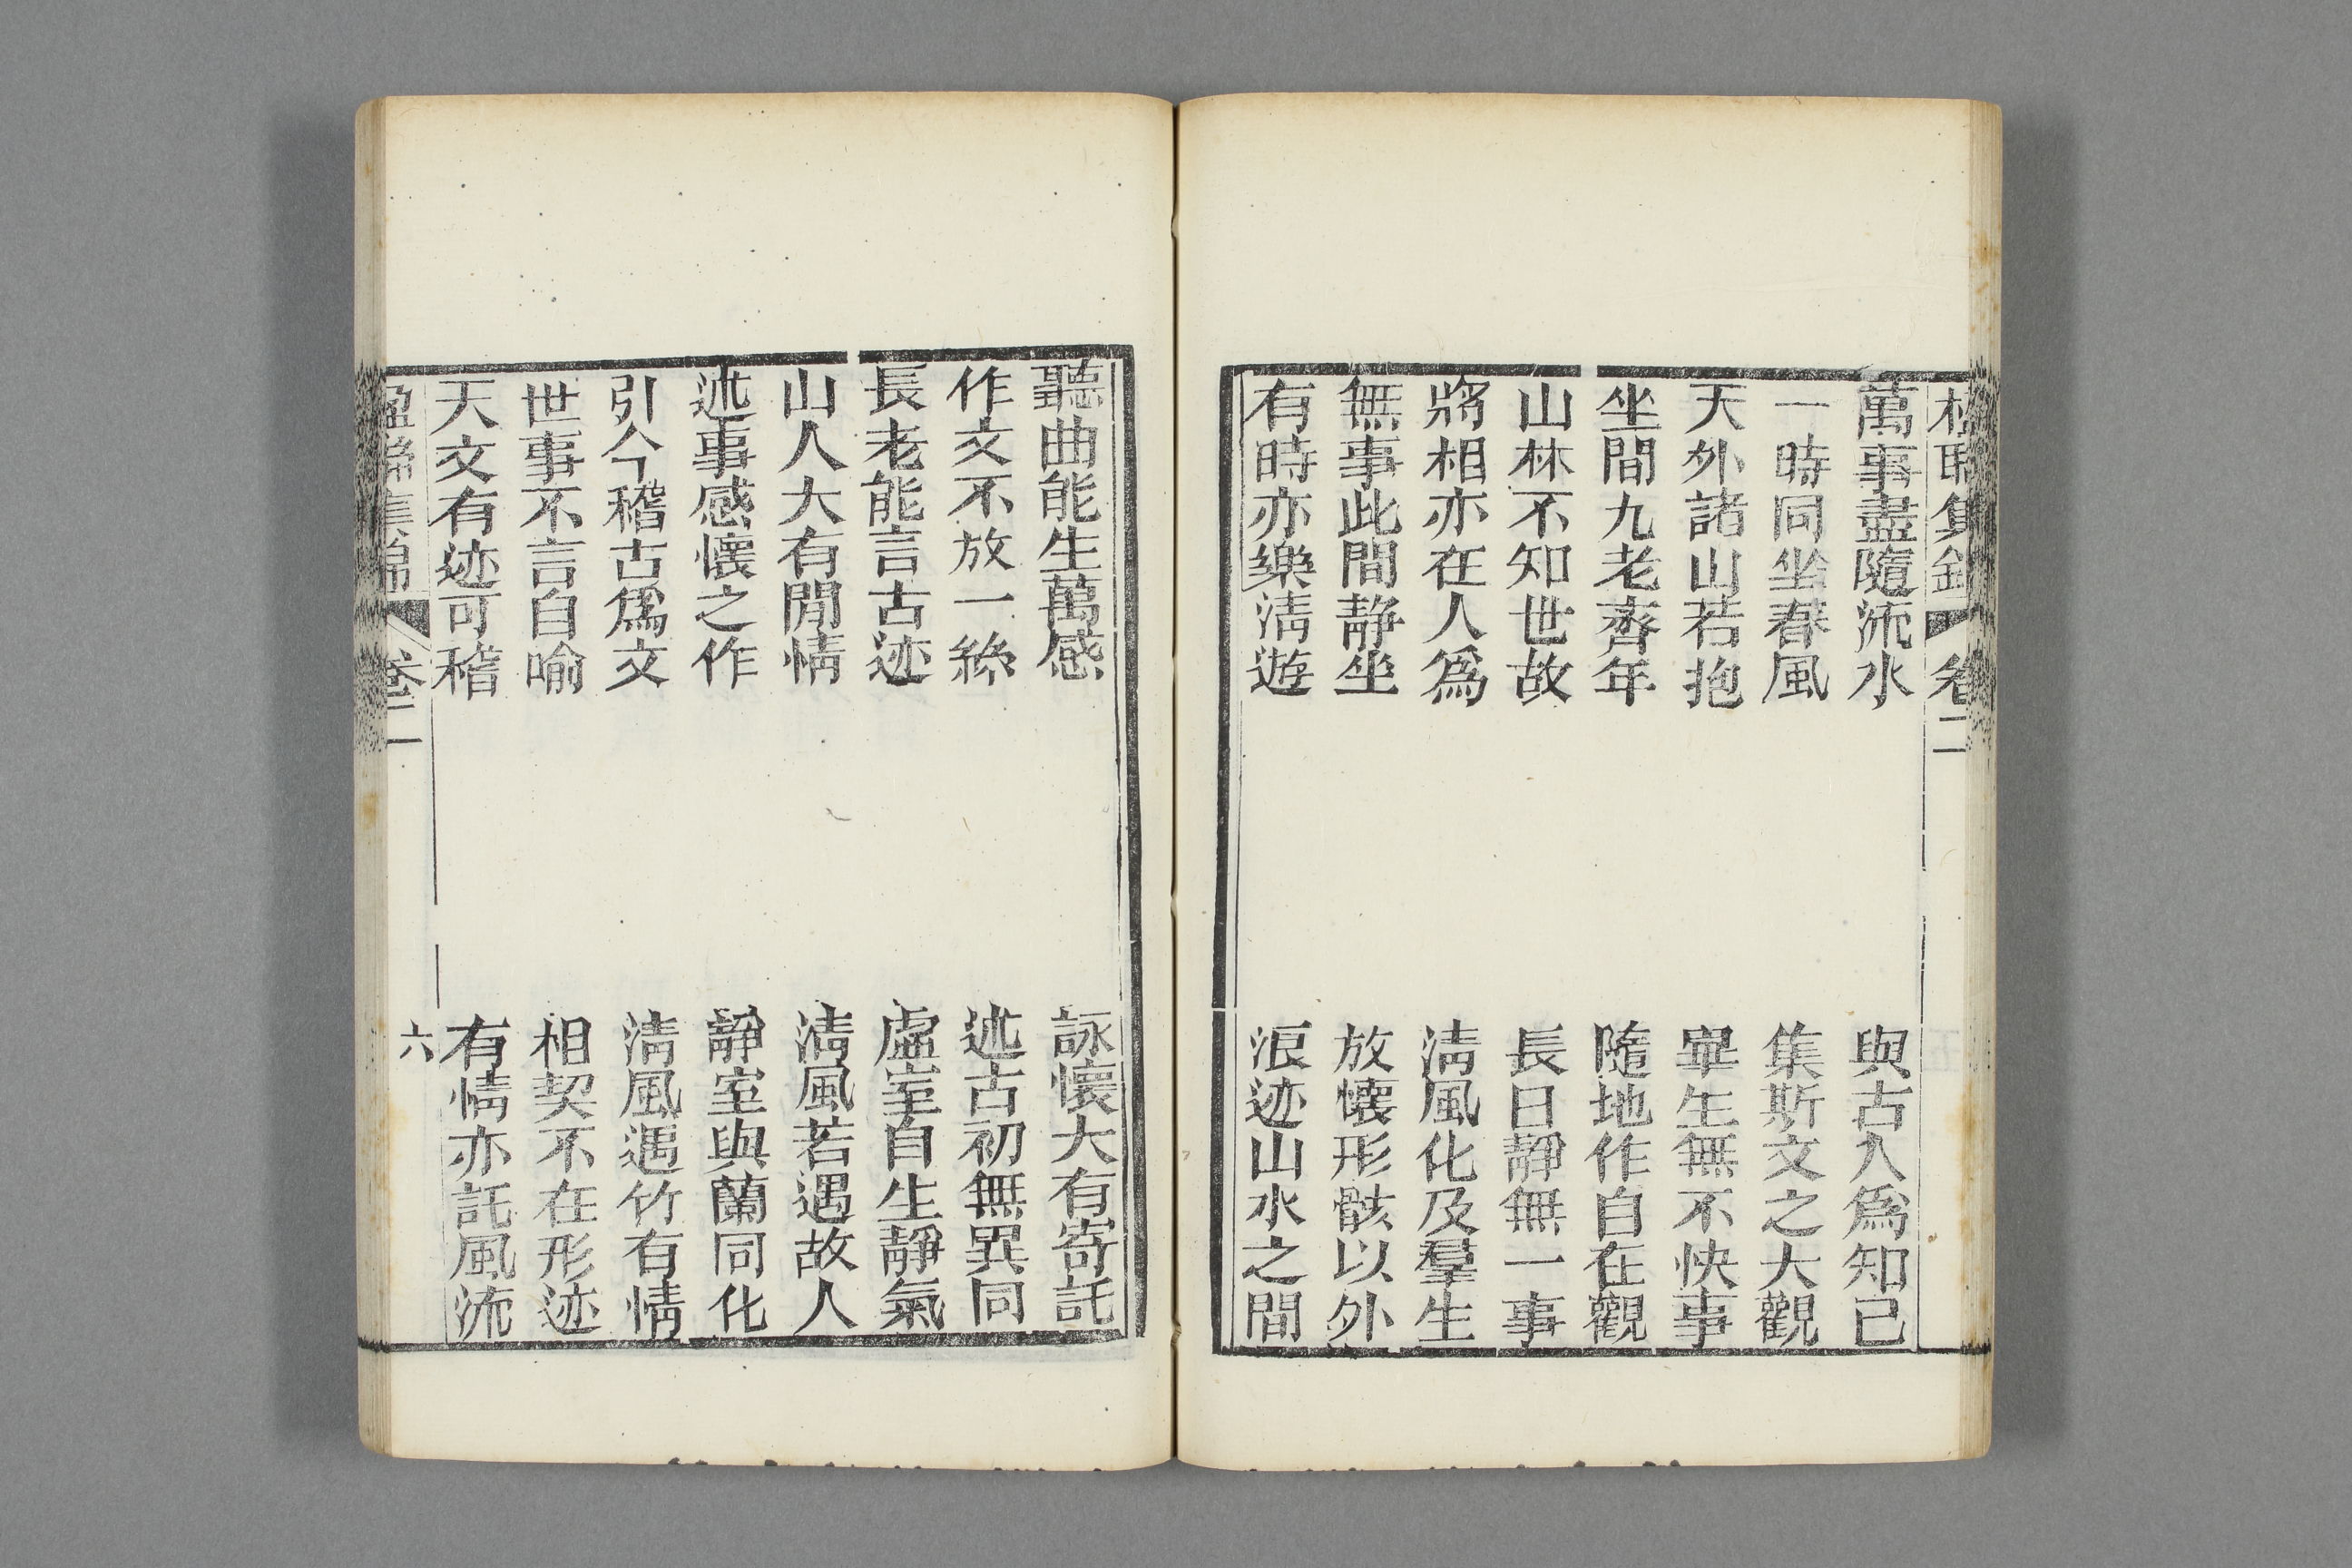 萬事盡隨流水
與古人為知己
一時同坐春風
集斯文之大觀
天外諸山若抱
畢生無不快事
坐間九老齊年
隨地作自在觀
山林不知世故
長日靜無一事
將相亦在人為
淸風化及羣生
無事此間静坐
放懷形骸以外
有時亦樂淸遊
浪迹山水之間
卷二
聽曲能生萬感
詠懷大有寄託
作文不放一絲
述古初無異同
長老能言古迹
虛室自生靜氣
山人大有閒情
淸風若遇故人
述事感懷之作
靜室與蘭同化
引今稽古為文
淸風遇竹有情
世事不言自喻
相契不在形迹
天文有迹可稽
有情亦託風流
六